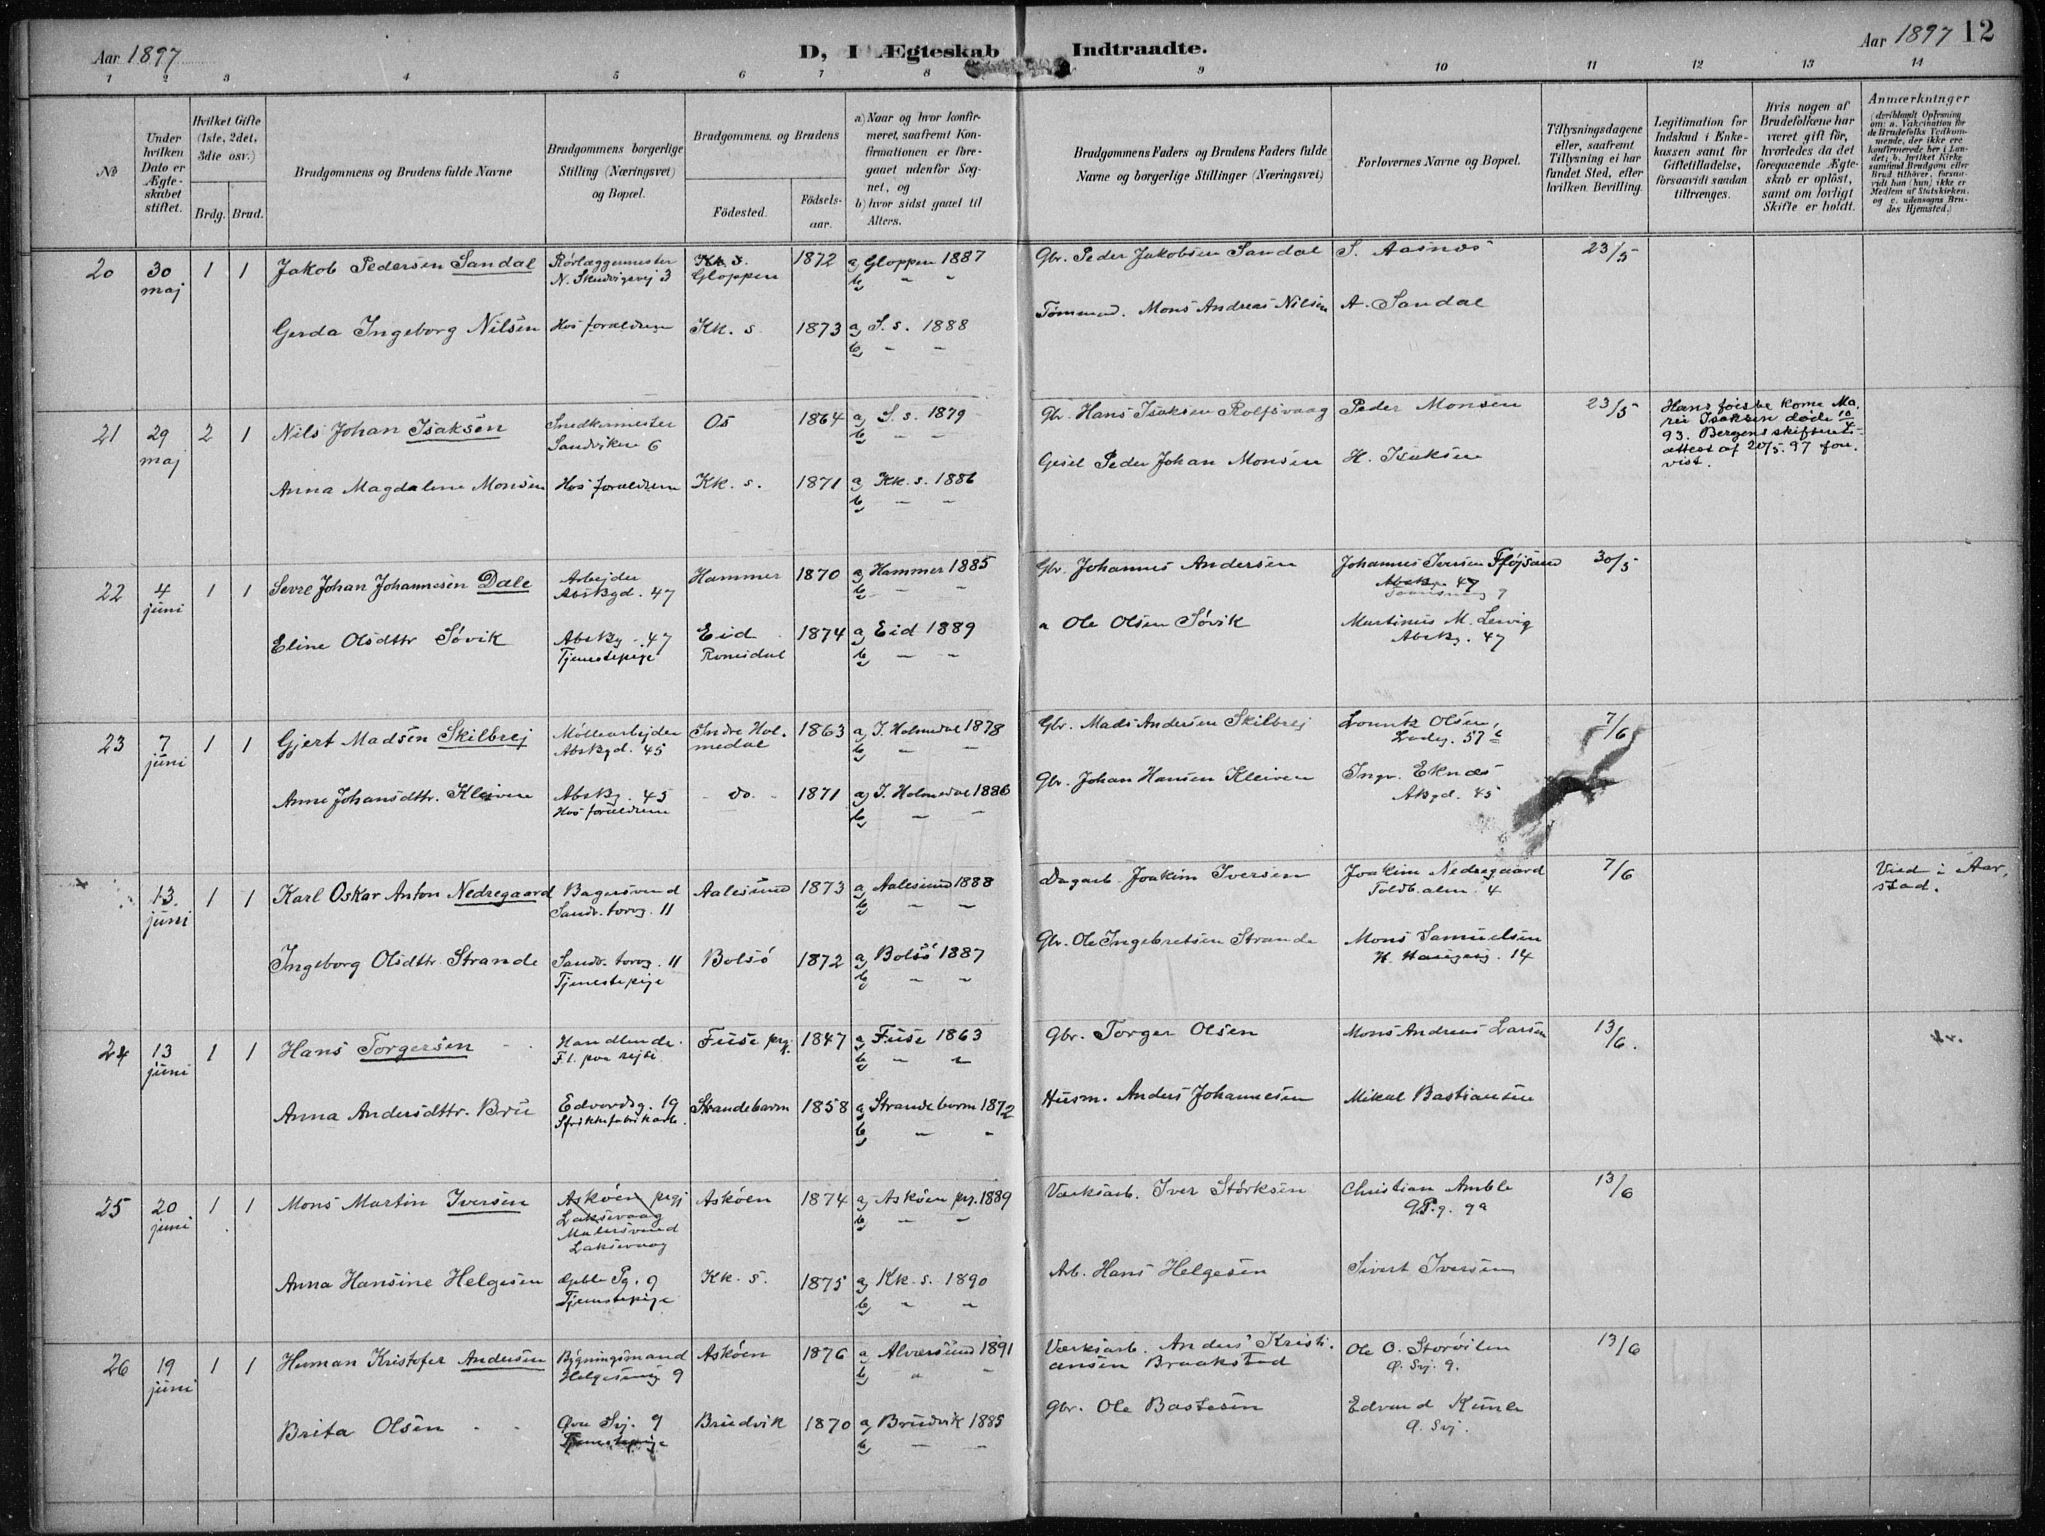 Aar 1897
D, I Ægteskab Indtraadte.
Aar 1897 12
1 2 3 4 5 6 7 8 9 10 11 12 13 14
No
Under hvilken Dato er Ægteskabet stiftet.
Hvilket Gifte (1ste, 2det, 3die osv.)
Brdg. Brud.
Brudgommens og Brudens fulde Navne
Brudgommens borgerlige Stilling (Næringsvei) og Bopæl.
Brudgommens og Brudens
Fødested.
Fødselsaar.
a) Naar og hvor konfirmeret, saafremt Konfirmationen er foregaaet udenfor Sognet, og
b) hvor sidst gaaet til Alters.
Brudgommens Faders og Brudens Faders fulde Navne og borgerlige Stillinger (Næringsvei)
Forlovernes Navne og Bopæl.
Tillysningsdagene eller, saafremt Tillysning ei har fundet Sted, efter hvilken Bevilling.
Legitimation for Indskud i Enkekassen samt for Giftetilladelse, forsaavidt saadan tiltrænges.
Hvis nogen af Brudefolkene har været gift før, hvorledes da det foregaaende Ægteskab er opløst, samt om lovligt Skifte er holdt.
Anmærkninger
20 30 maj 1 1 Jakob Pedersen Sandal Rørlæggermester N. Skudvigsvej 3 Kk. s. Gloppen 1872 a) Gloppen 1887 b) " " Gbr. Peder Jakobsen Sandal S. Aasnes 23/5
Gerda Ingeborg Nilsen Hos forældrene Kk. s 1873 a) S. s. 1888 b) " " Tømmerd. Mons Andreas Nilsen A. Sandal
21 29 maj 2 1 Nils Johan Isaksen Snedkermester Sandviken 6 Os 1864 a) S. s. 1879 b) " " Gbr. Hans Isaksen Rolfsvaag Peder Monsen 23/5 Hans første kone Marie Isaksen døde 10/4 93. Bergens skifterets attest af 20/5.97 forevist.
Anna Magdalene Monsen Hos forældrene Kk. s. 1871 a) Kk. s. 1886 b) " " Peder Johan Monsen H. Isaksen
22 4 juni 1 1 Sevre Johan Johannesen Dale Arbejder Absbgd. 47 Hammer 1870 a) Hammer 1885 b) " " Gbr. Johannes Andersen Johannes Iversen Fløjsand 30/5
Eline Olsdttr Søvik Absbg. 47 Tjenestepige Eid Romsdal 1874 a) Eid 1889 b) " " " Ole Olsen Søvik Martinus M. Lervig Absbg. 47
23 7 juni 1 1 Gjert Madsen Skilbrej Møllearbejder Absbgd. 45 Indre Holmedal 1863 a) I. Holmedal 1878 b) " " Gbr. Mads Andersen Skilbrej Lorentz Olsen, Ladeg. 57 7/6
Anne Johansdttr. Kleiven Absbg. 45 Hos forældrene do. 1871 a) I. Holmedal 1886 b) " " Gbr. Johan Hansen Kleiven Ingv. Eknes Abgd. 45
13 juni 1 1 Karl Oskar Anton Nedregaard Bagersvend Sandv. torvg. 11 Aalesund 1873 a) Aalesund 1888 b) " " Dagarb. Joakim Iversen Joakim Nedregaard Toldb.alm. 4 7/6 Viet i Aarstad.
Ingeborg Olsdttr. Strande Sandv. torvg. 11 Tjenestepige Bolsø 1872 a) Bolsø 1887 b) " " Gbr. Ole Ingebretsen Strande Mons Samuelsen 14
24 13 juni 1 1 Hans Torgersen Handlende. F.t. paa rejse. Fuse prgj. 1847 a) Fuse 1863 b) " " Gbr. Torger Olsen Mons Andreas Larsen 13/6.
Anna Andersdttr. Bru Edvardsg. 19 Strikkefabrikarb. Strandebarm 1858 a) Strandebarm 1872 b) " " Husm. Anders Johannesen Mikal Bastiansen
25 20 juni 1 1 Mons Martin Iversen Askøen prgj Laksevaag Malersvend Laksevaag Askøen 1874 a) Askøen prgj. 1889 b) " " Værksarb. Iver Størksen Christian Amble 9a 13/6
Anna Hansine Helgesen Gjeble Pg. 9 Tjenestepige Kk. s. 1875 a) Kk. s. 1890 b) " " Arb. Hans Helgesen Sivert Iversen
26 19 juni 1 1 Herman Kristofer Andersen Bygningsmand Helgesensg 9 Askøen 1876 a) Alversund 1891 b) " " Værksarb. Anders Kristiansen Braakstad Ole O. Storøiten Ø. Svj. 9. 13/6
Brita Olsen Øvre Svj. 9 Tjenestepige Brudvik 1870 a) Brudvik 1885 b) " " Gbr. Ole Bastesen Edvard Ø. Svj.